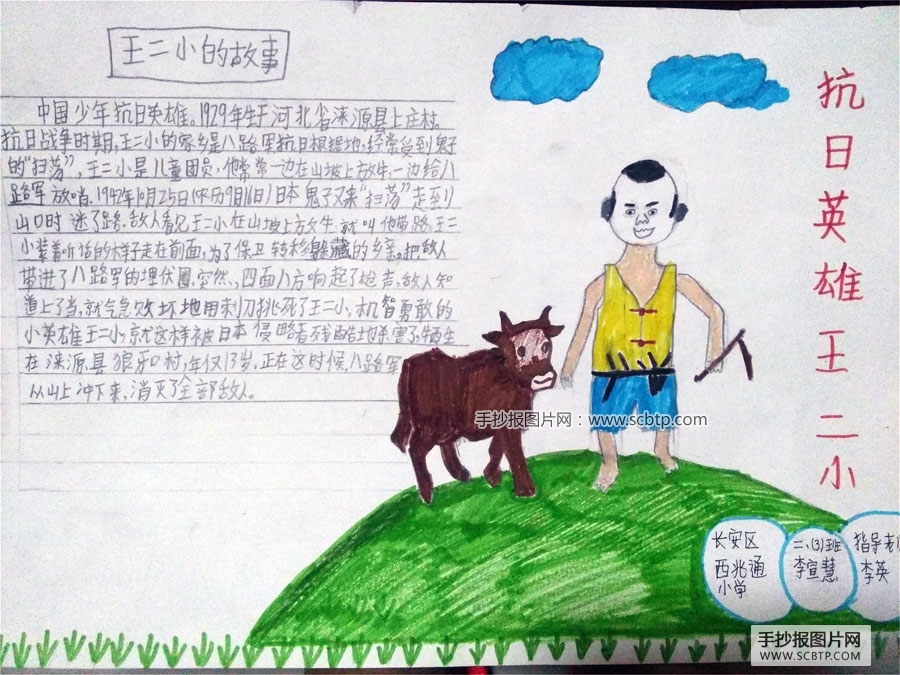 王二小的故事
中国少年抗日英雄。1929年生于河北省涞源县上庄村。
抗日战争时期，王二小的家乡是八路军抗日根据地，经常受到鬼子
的“扫荡”，王二小是儿童团员，他常常一边在山坡上放牛，一边给八
路军放哨。1942年10月25日(农历9月16日)日本鬼子又来“扫荡”走至
山口时迷了路。敌人看见王二小在山坡上放牛就叫他带路。王二
小装着听话的样子走在前面，为了保卫转移躲藏的乡亲。把敌人
带进了八路军的埋伏圈。突然，四面八方响起了枪声，敌人知
道上了当，就气急败坏地用刺刀挑死了王二小，机智勇敢的
小英雄王二小，就这样被日本侵略者残酷地杀害了。牺牲
在涞源县狼牙口村，年仅13岁。正在这时候，八路军
从山上冲下来，消灭了全部敌人。
抗日英雄王二小
手抄报图片网：www.scbtp.com
长安区
西兆通
小学
二、(3)班
李宣慧
指导老师
李英
手抄报图片网
WWW.SCBTP.COM